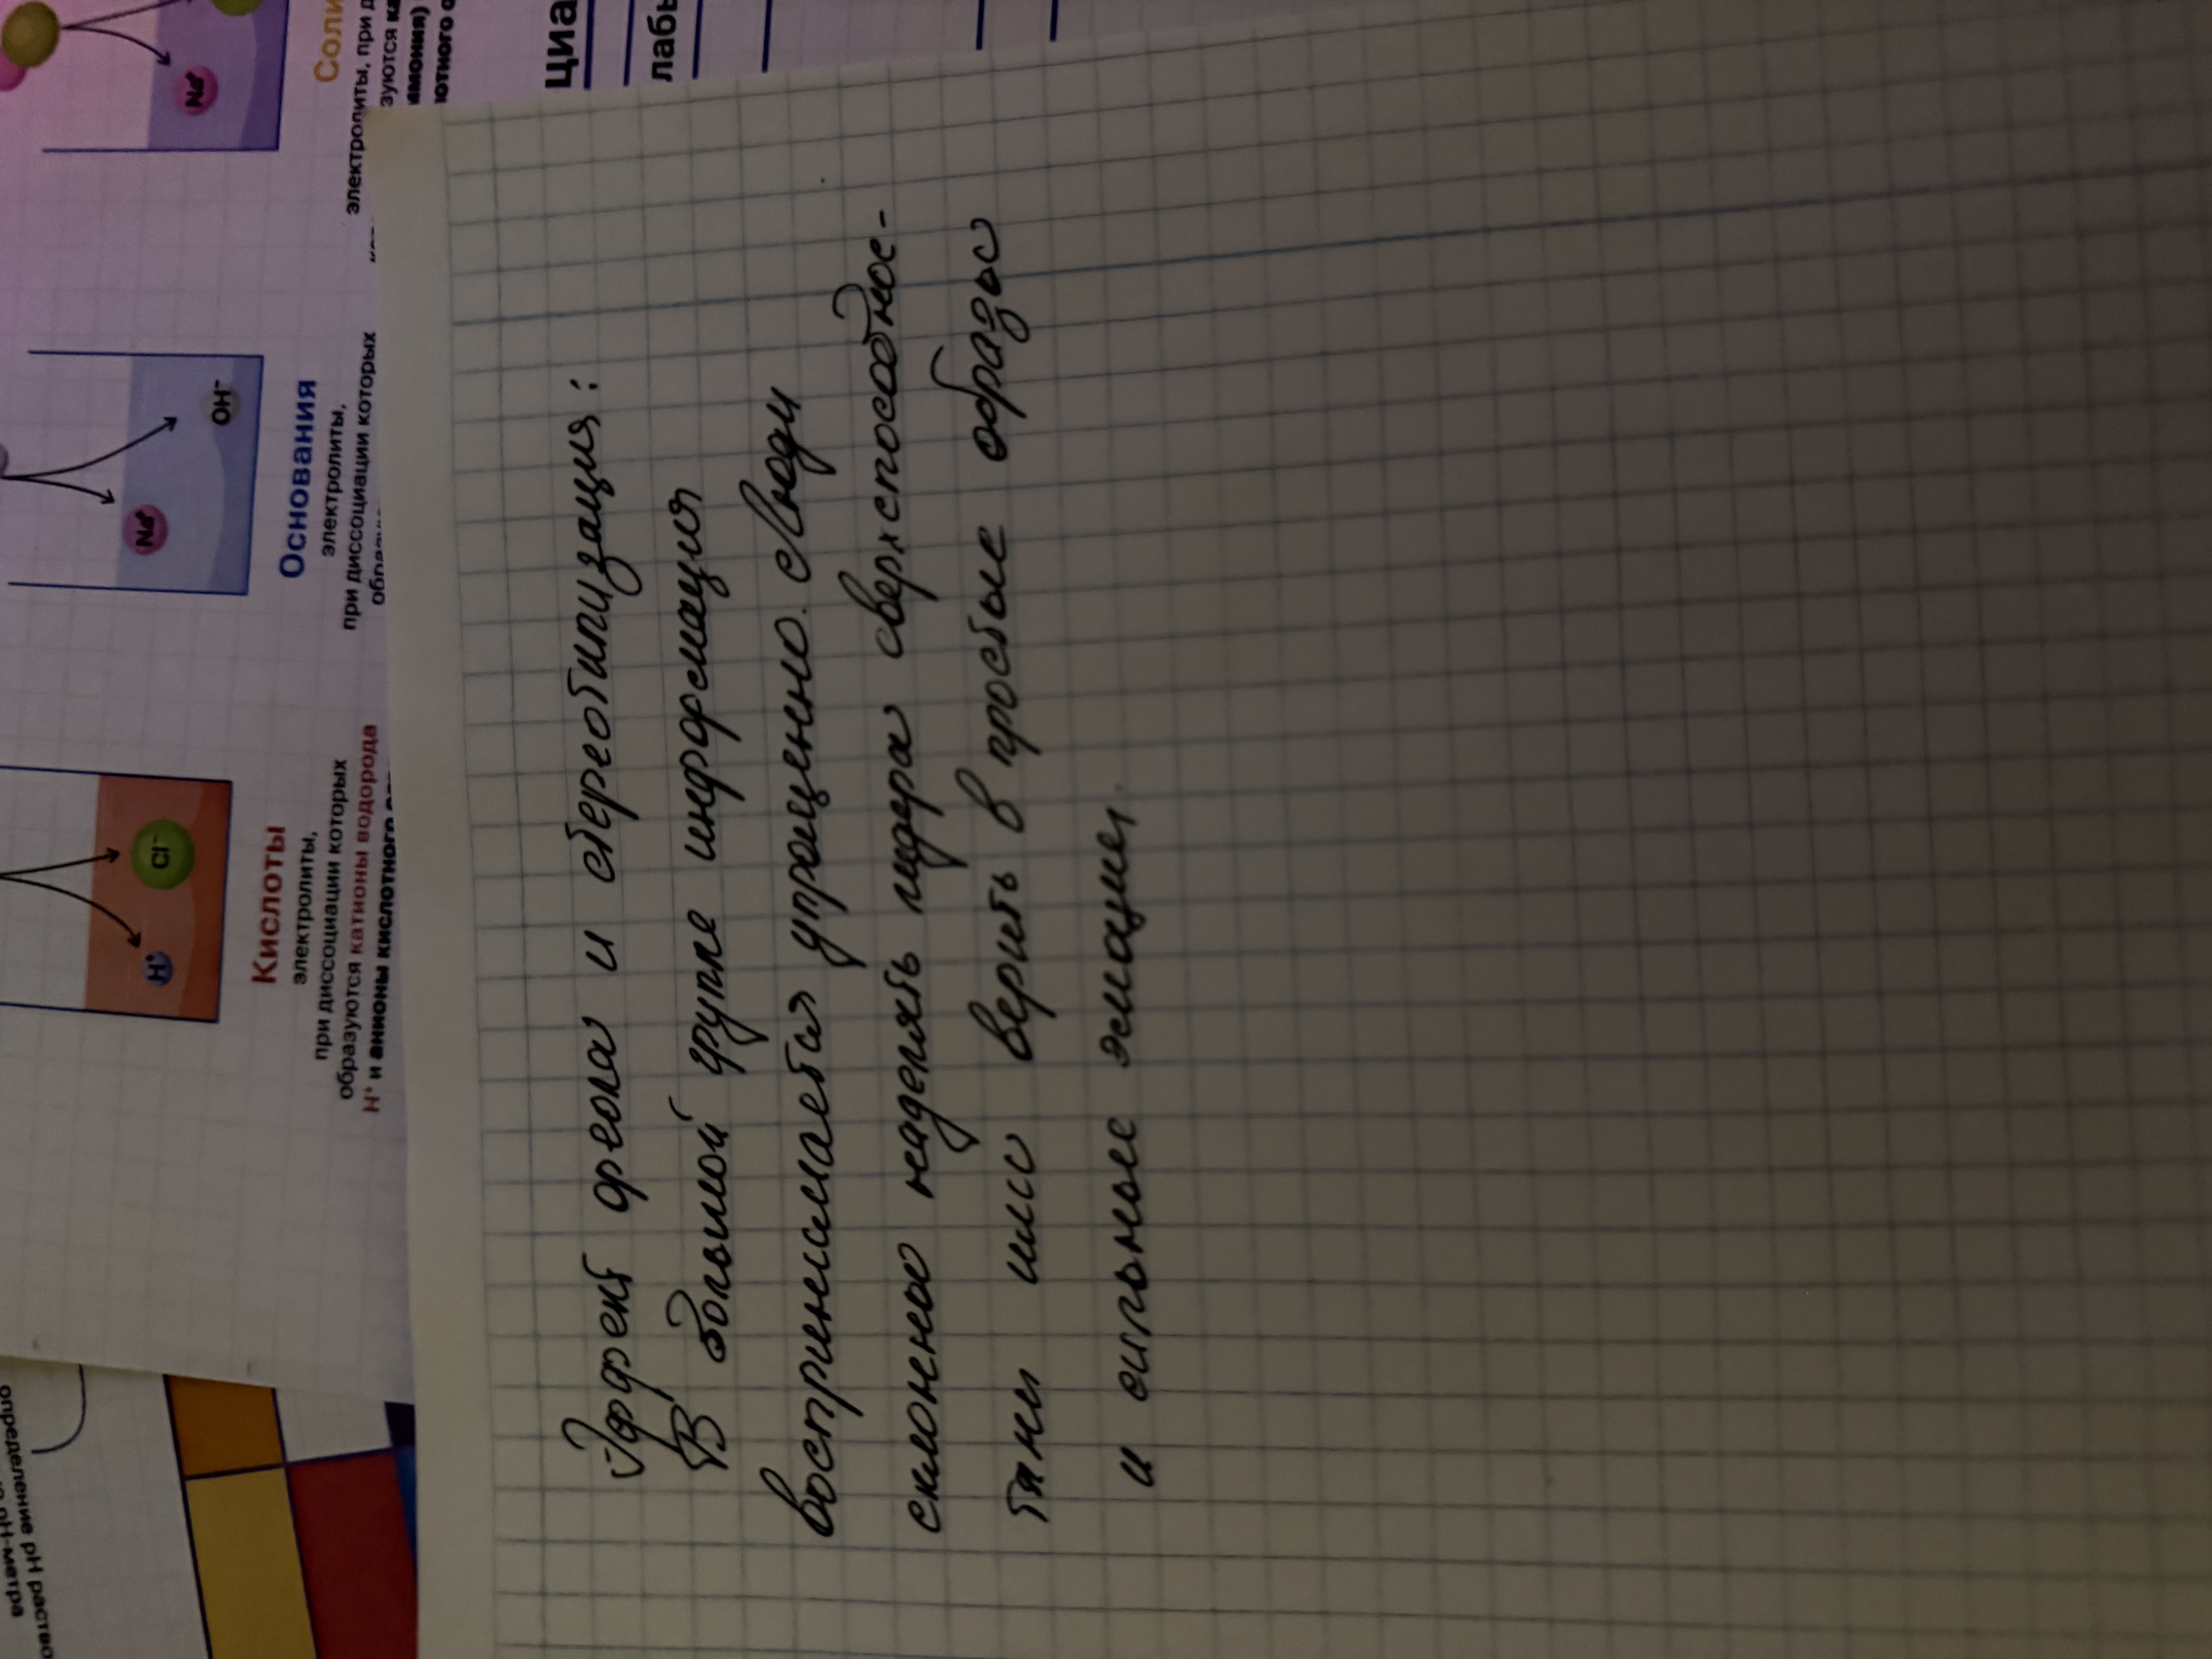 Эффект ореола и стереотипизация:
В большой группе информация
воспринимается упрощенно. Люди
склонны наделять лидера сверхспособнос-
тями или верить в простые образы
и сильные эмоции.
Кислоты
электролиты,
при диссоциации которых
образуются катионы водорода
H⁺ и анионы кислотного
H⁺
Cl⁻
Основания
электролиты,
при диссоциации которых
Na⁺
OH⁻
Соли
электролиты, при д
зуются ка
ммония)
лотного о
Na⁺
циа
лабы
определение pH раство
pH-метра